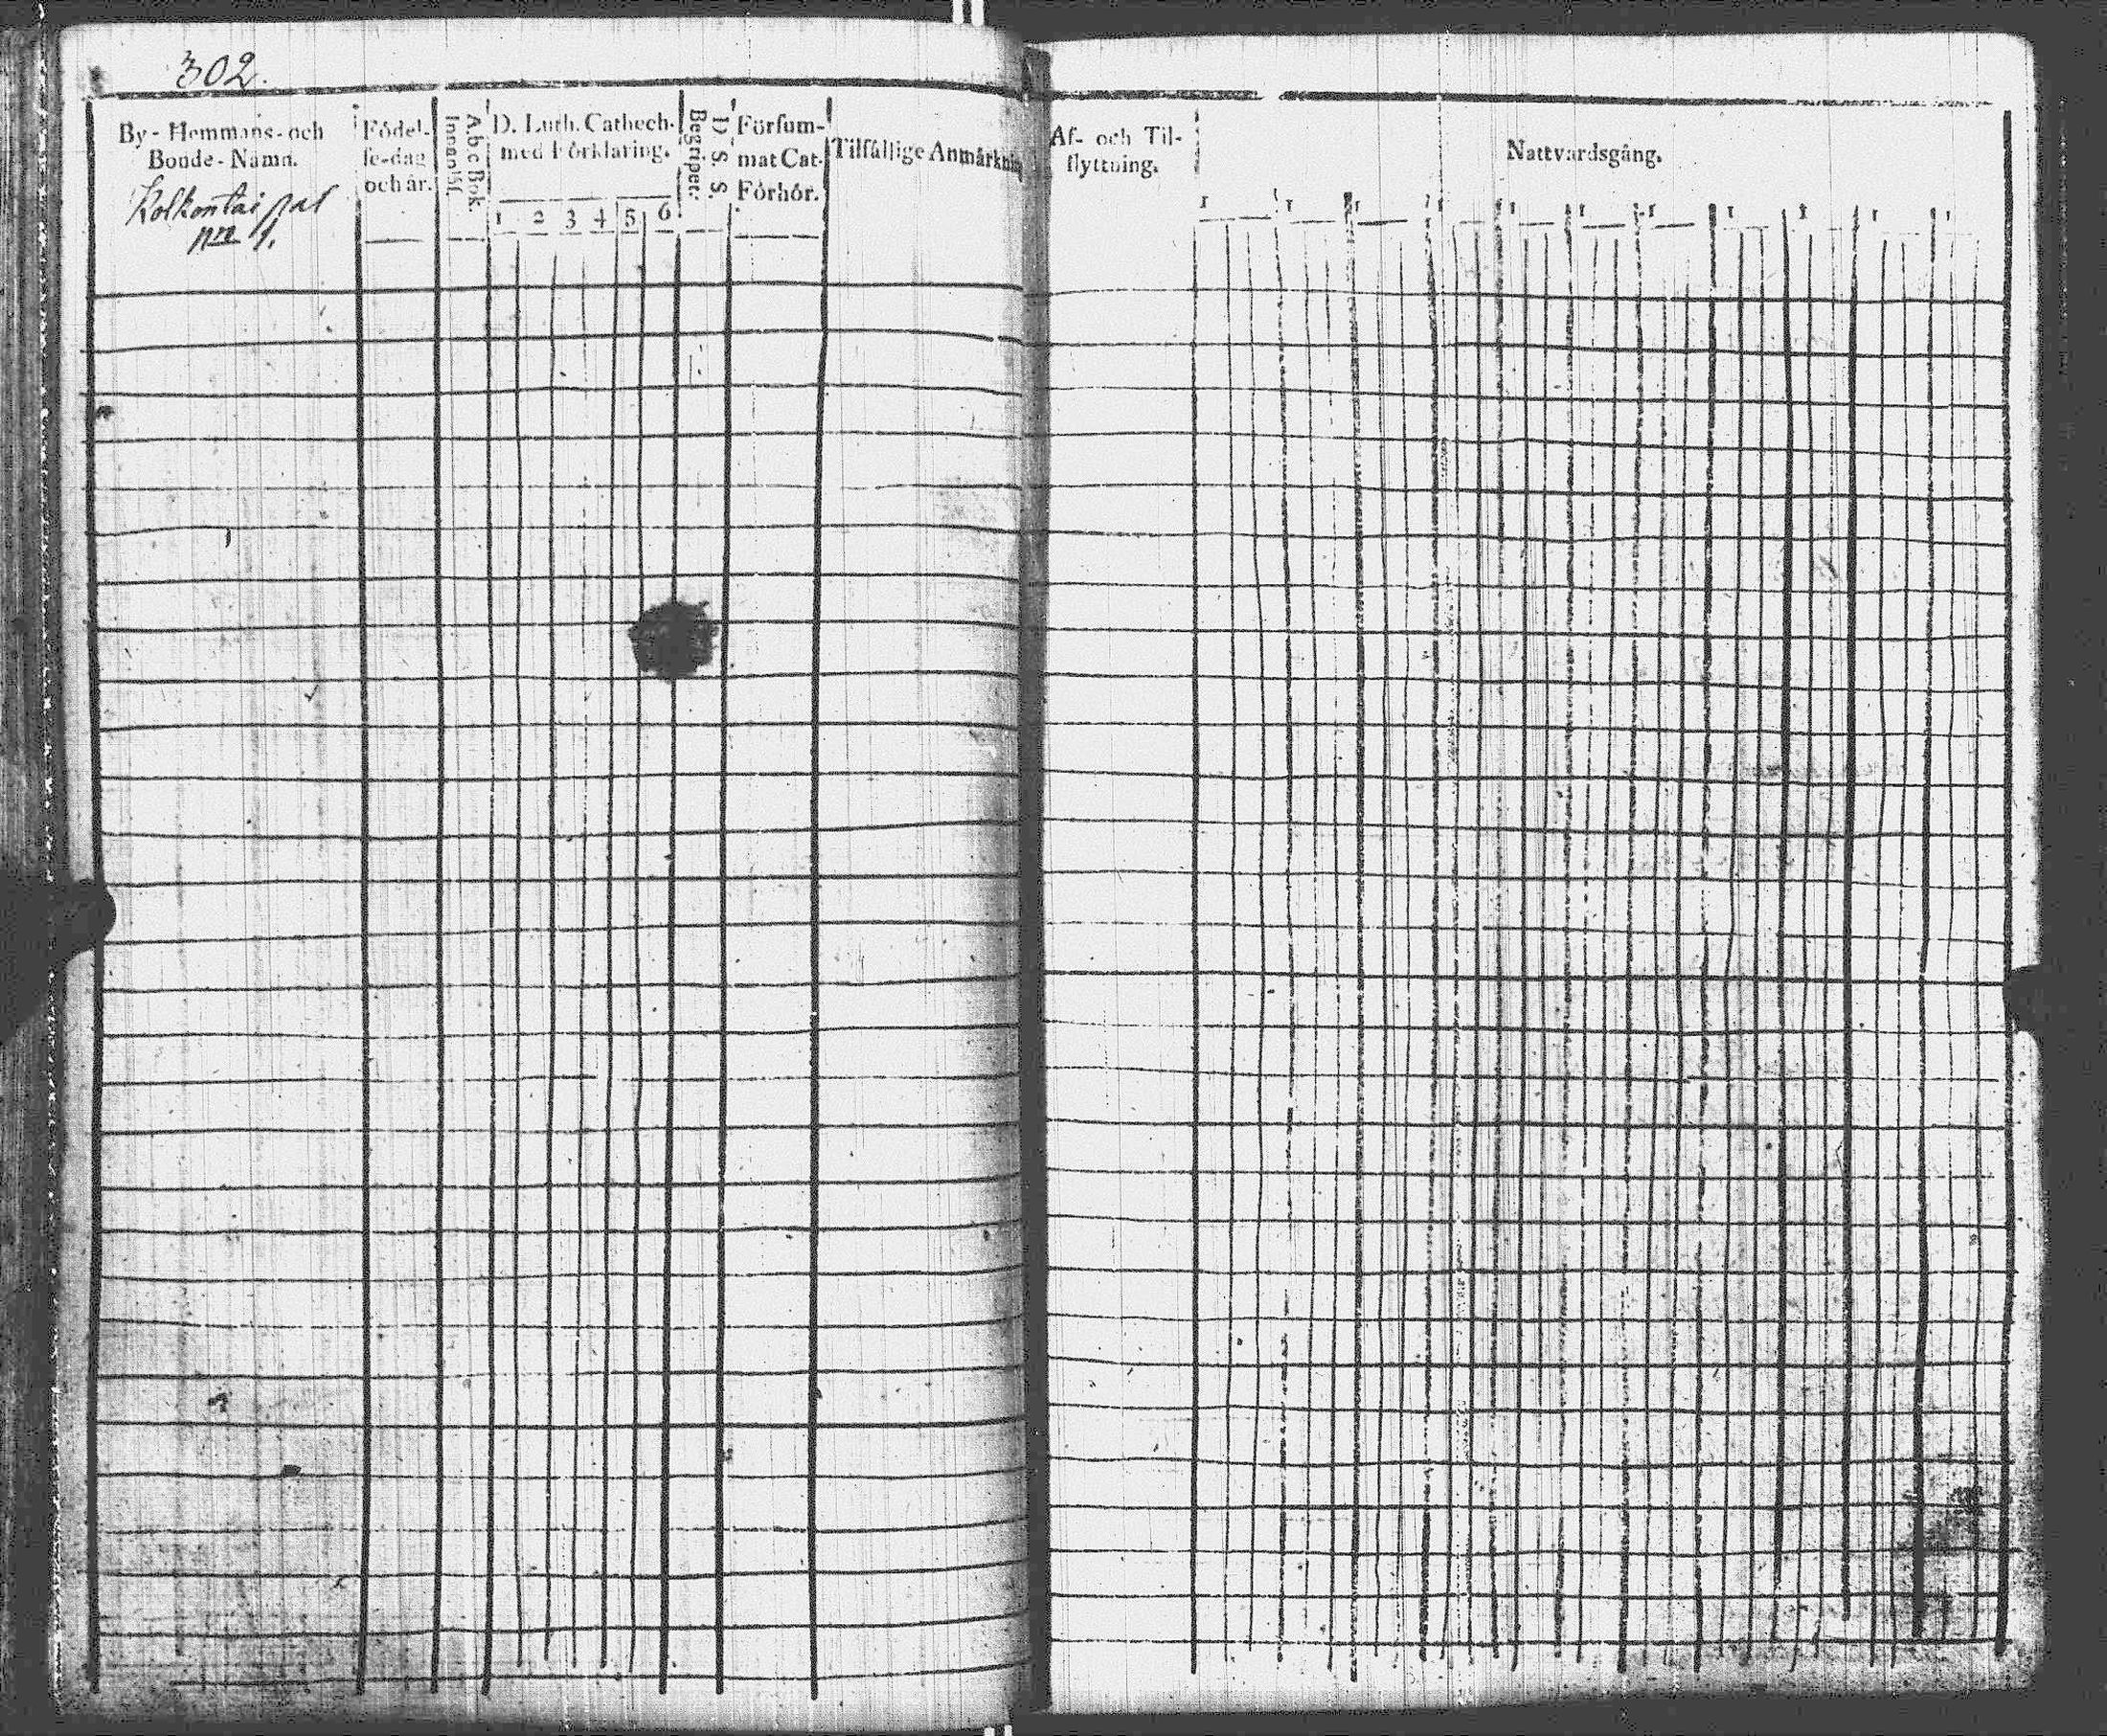 302.
By- Hemmans- och
Bonde-Namn.
nro 1.
Födel-
se-dag
och år.
Innanläs.
A b c Bok.
D. Luth. Cathech.
med Förklaring.
1 2 3 4 5 6
Begripet.
D. S. S.
Försum-
mat Cat.
Förhör.
Tilfällige Anmärknin
Af- och Til-
flyttning.
Nattvardsgång.
1 1 1 1 1 1 1 1 1 1 1